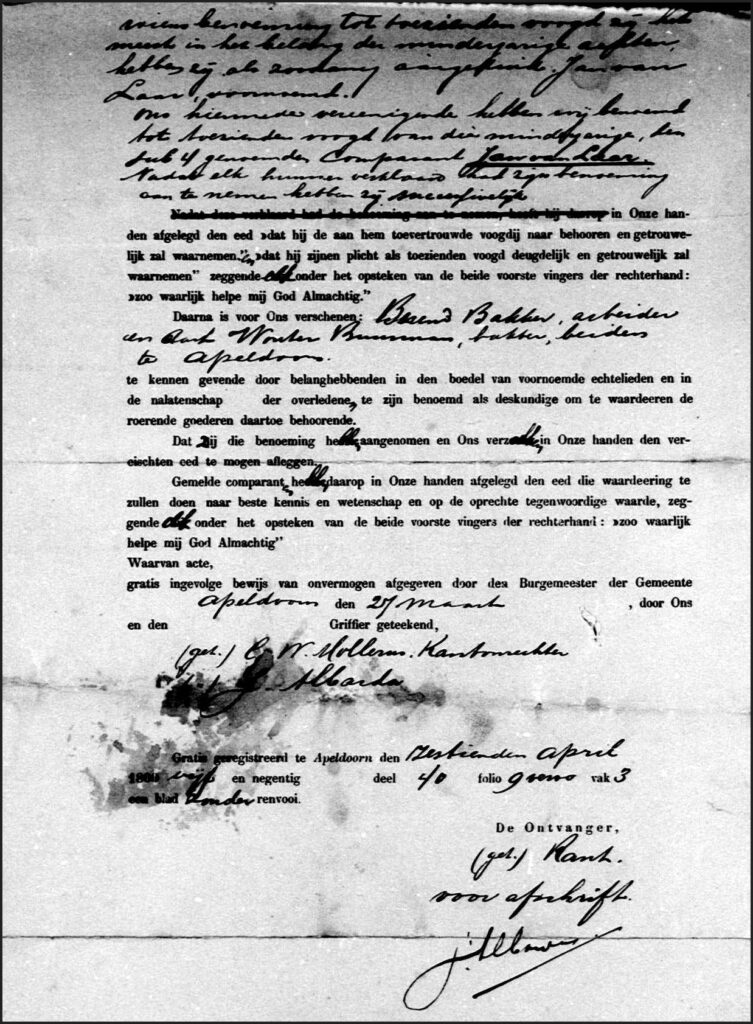 wiens benoeming tot toezienden voogd zij het
meest in het belang der minderjarige achten,
hebben zij als zoodanig aangewezen Jan van
Laar, voornoemd.
Ons hiermede vereenigende hebben wij benoemd
tot toezienden voogd van die minderjarige, den
sub 4 genoemden comparant Jan van Laar.
Nadat elk hunner verklaard had zijn benoeming
aan te nemen hebben zij successivelijk
Nadat deze verklaard had de benoeming aan te nemen, heeft hij daarop in Onze han-
den afgelegd den eed »dat hij de aan hem toevertrouwde voogdij naar behooren en getrouwe-
lijk zal waarnemen." »dat hij zijnen plicht als toezienden voogd deugdelijk en getrouwelijk zal
waarnemen" zeggende elk onder het opsteken van de beide voorste vingers der rechterhand:
»zoo waarlijk helpe mij God Almachtig."
Daarna is voor Ons verschenen: Berend Bakker, arbeider
en Aart Wouter Buurman, bakker, beiden
te Apeldoorn.
te kennen gevende door belanghebbenden in den boedel van voornoemde echtelieden en in
de nalatenschap der overledene, te zijn benoemd als deskundige om te waardeeren de
roerende goederen daartoe behoorende.
Dat zij die benoeming hebben aangenomen en Ons verzoeken in Onze handen den ver-
eischten eed te mogen afleggen.
Gemelde comparanten hebben daarop in Onze handen afgelegd den eed die waardeering te
zullen doen naar beste kennis en wetenschap en op de oprechte tegenwoordige waarde, zeg-
gende elk onder het opsteken van de beide voorste vingers der rechterhand: »zoo waarlijk
helpe mij God Almachtig"
Waarvan acte,
gratis ingevolge bewijs van onvermogen afgegeven door den Burgemeester der Gemeente
Apeldoorn den 27 Maart , door Ons
en den Griffier geteekend,
(get.) C. W. Mollerus. Kantonrechter
J. Albarda
Gratis geregistreerd te Apeldoorn den Zestienden April
1800 vijf en negentig deel 40 folio 9 verso vak 3
een blad zonder renvooi.
De Ontvanger,
(get.) Kant.
voor afschrift.